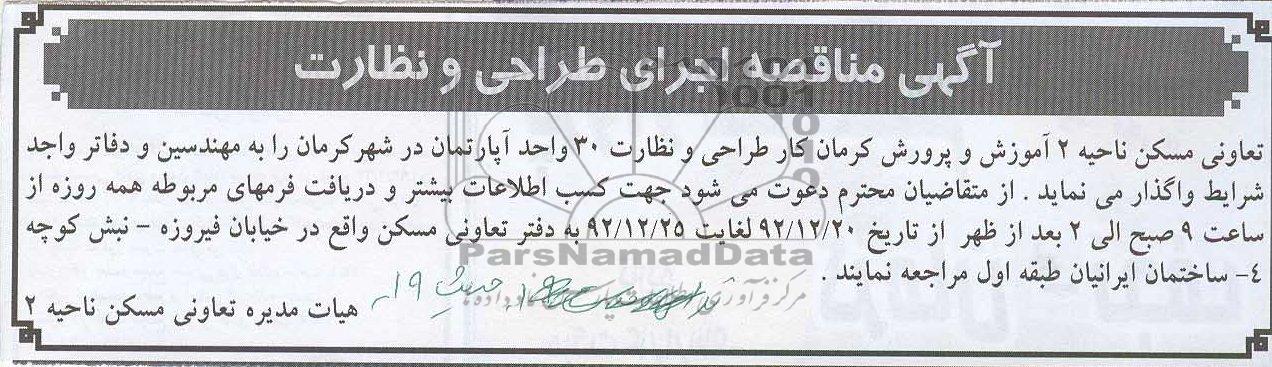 آگهی مناقصه اجرای طراحی و نظارت
تعاونی مسکن ناحیه ۲ آموزش و پرورش کرمان کار طراحی و نظارت ۳۰ واحد آپارتمان در شهرکرمان را به مهندسین و دفاتر واجد
شرایط واگذار می نماید . از متقاضیان محترم دعوت می شود جهت کسب اطلاعات بیشتر و دریافت فرمهای مربوطه همه روزه از
ساعت ۹ صبح الی ۲ بعد از ظهر از تاریخ ۹۲/۱۲/۲۰ لغایت ۹۲/۱۲/۲۵ به دفتر تعاونی مسکن واقع در خیابان فیروزه - نبش کوچه
ParsNamadData
۴- ساختمان ایرانیان طبقه اول مراجعه نمایند .
هیات مدیره تعاونی مسکن ناحیه ۲